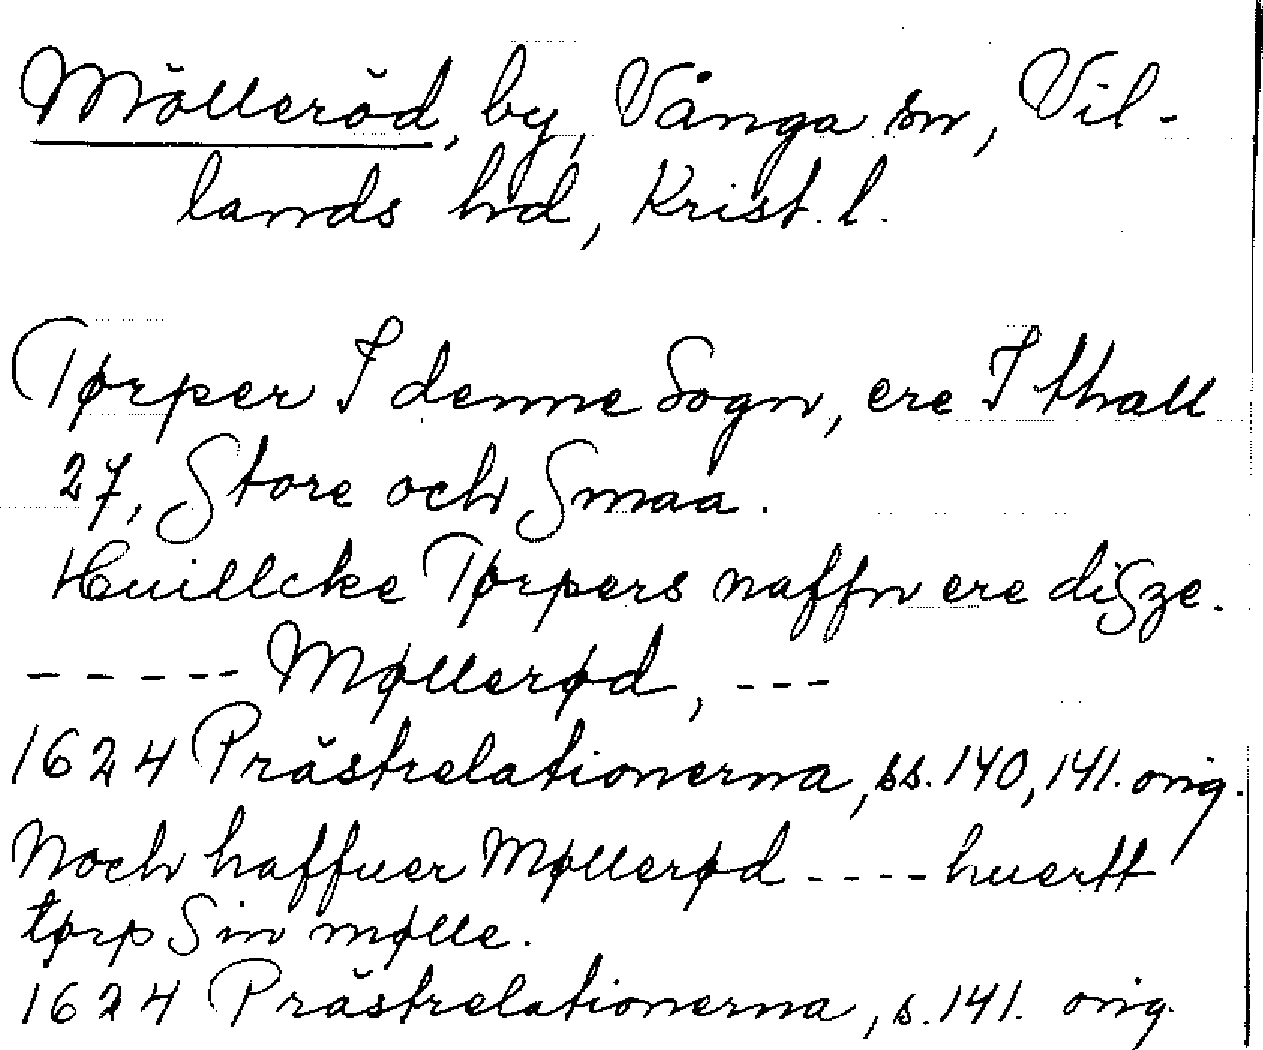 Mölleröd, by, Vånga sn, Vil-
lands hd, Krist. l.
Tørper I denne Sogn, ere I thall
27, Store och Smaa.
Huillcke Tørpers naffn ere diSze.
----- Møllerød, ---
1624 Prästrelationerna, ss. 140, 141. orig.
Noch haffuer Møllerød ---- huertt
tørp Sin mølle.
1624 Prästrelationerna, s. 141. orig.